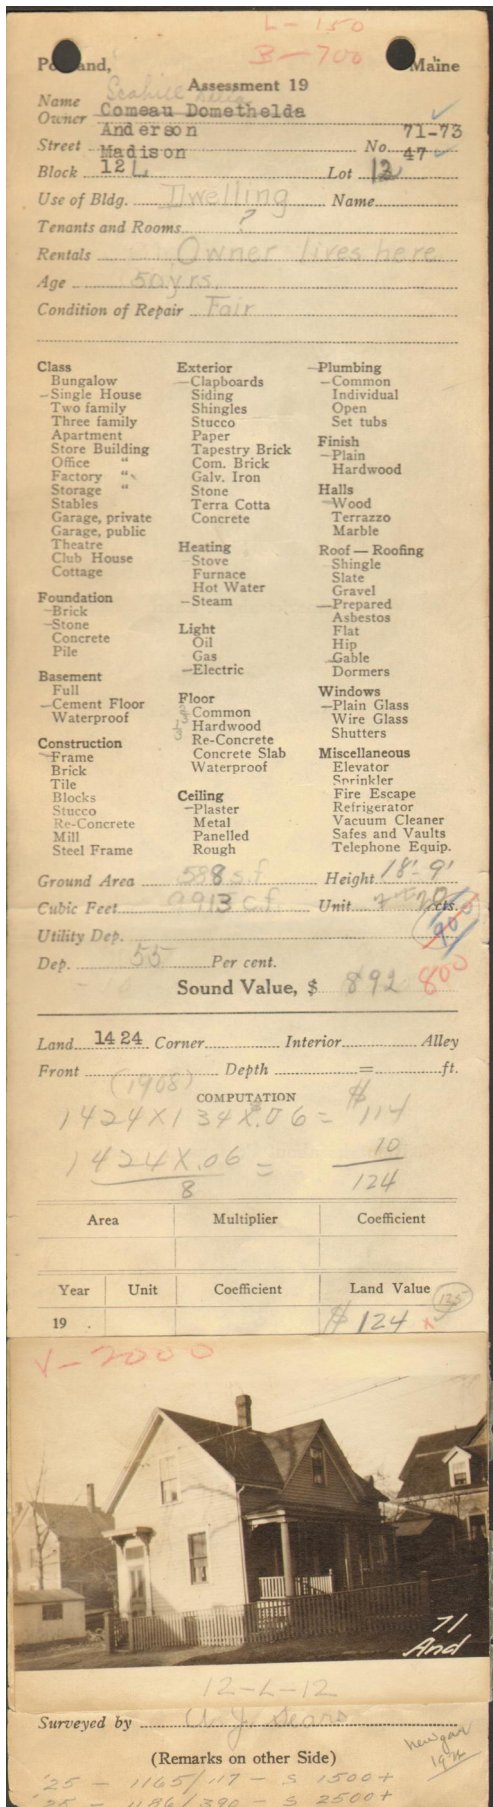 L-150
B-700
Portland, Maine
Assessment 19
Scahill
Name Owner Comeau Domethelda
Street Anderson No. 71-73
Madison 47
Block 12 L Lot 12
Use of Bldg. Dwelling Name
Tenants and Rooms ?
Rentals Owner lives here
Age 50 yrs.
Condition of Repair Fair
Class
Bungalow
Single House
Two family
Three family
Apartment
Store Building
Office "
Factory "
Storage "
Stables
Garage, private
Garage, public
Theatre
Club House
Cottage
Foundation
Brick
Stone
Concrete
Pile
Basement
Full
Cement Floor
Waterproof
Construction
Frame
Brick
Tile
Blocks
Stucco
Re-Concrete
Mill
Steel Frame
Exterior
Clapboards
Siding
Shingles
Stucco
Paper
Tapestry Brick
Com. Brick
Galv. Iron
Stone
Terra Cotta
Concrete
Heating
Stove
Furnace
Hot Water
Steam
Light
Oil
Gas
Electric
Floor
2/3 Common
1/3 Hardwood
Re-Concrete
Concrete Slab
Waterproof
Ceiling
Plaster
Metal
Panelled
Rough
Plumbing
Common
Individual
Open
Set tubs
Finish
Plain
Hardwood
Halls
Wood
Terrazzo
Marble
Roof — Roofing
Shingle
Slate
Gravel
Prepared
Asbestos
Flat
Hip
Gable
Dormers
Windows
Plain Glass
Wire Glass
Shutters
Miscellaneous
Elevator
Sprinkler
Fire Escape
Refrigerator
Vacuum Cleaner
Safes and Vaults
Telephone Equip.
Ground Area 588 s.f. Height 18'-9'
Cubic Feet 9913 c.f. Unit cts.
900
Utility Dep.
Dep. 55 Per cent.
Sound Value, $ 892 800
Land 1424 Corner Interior Alley
Front Depth = ft.
(1908)
COMPUTATION
1424 X 134 X .06 = $ 114
1424 X .06 = 10
8 124
Area Multiplier Coefficient
Year Unit Coefficient Land Value
125
19 . $ 124 x
V-2000
71
And
12-L-12
Surveyed by A. J. Sears
(Remarks on other Side)
'25 - 1165/117 - S 1500+
'25 - 1186/390 - S 2500+